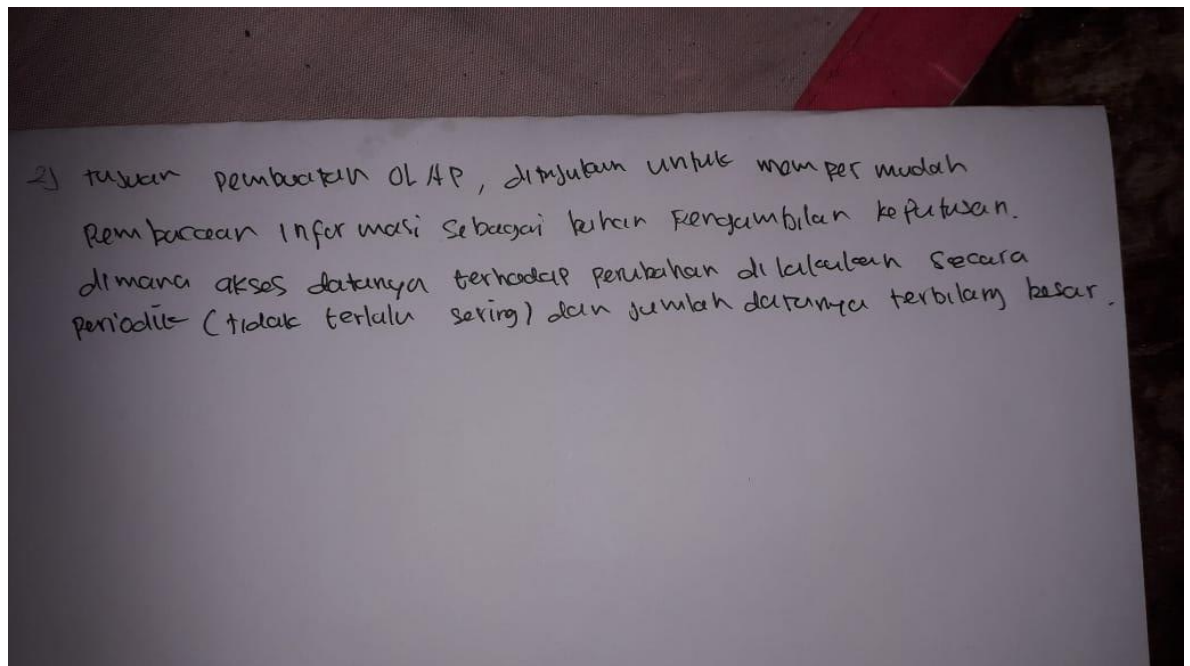 2) tujuan pembuatan OLAP, ditujukan untuk mempermudah
Pembacaan informasi sebagai bahan Pengambilan keputusan.
dimana akses datanya terhadap perubahan dilakukan secara
periodik (tidak terlalu sering) dan jumlah datanya terbilang besar.